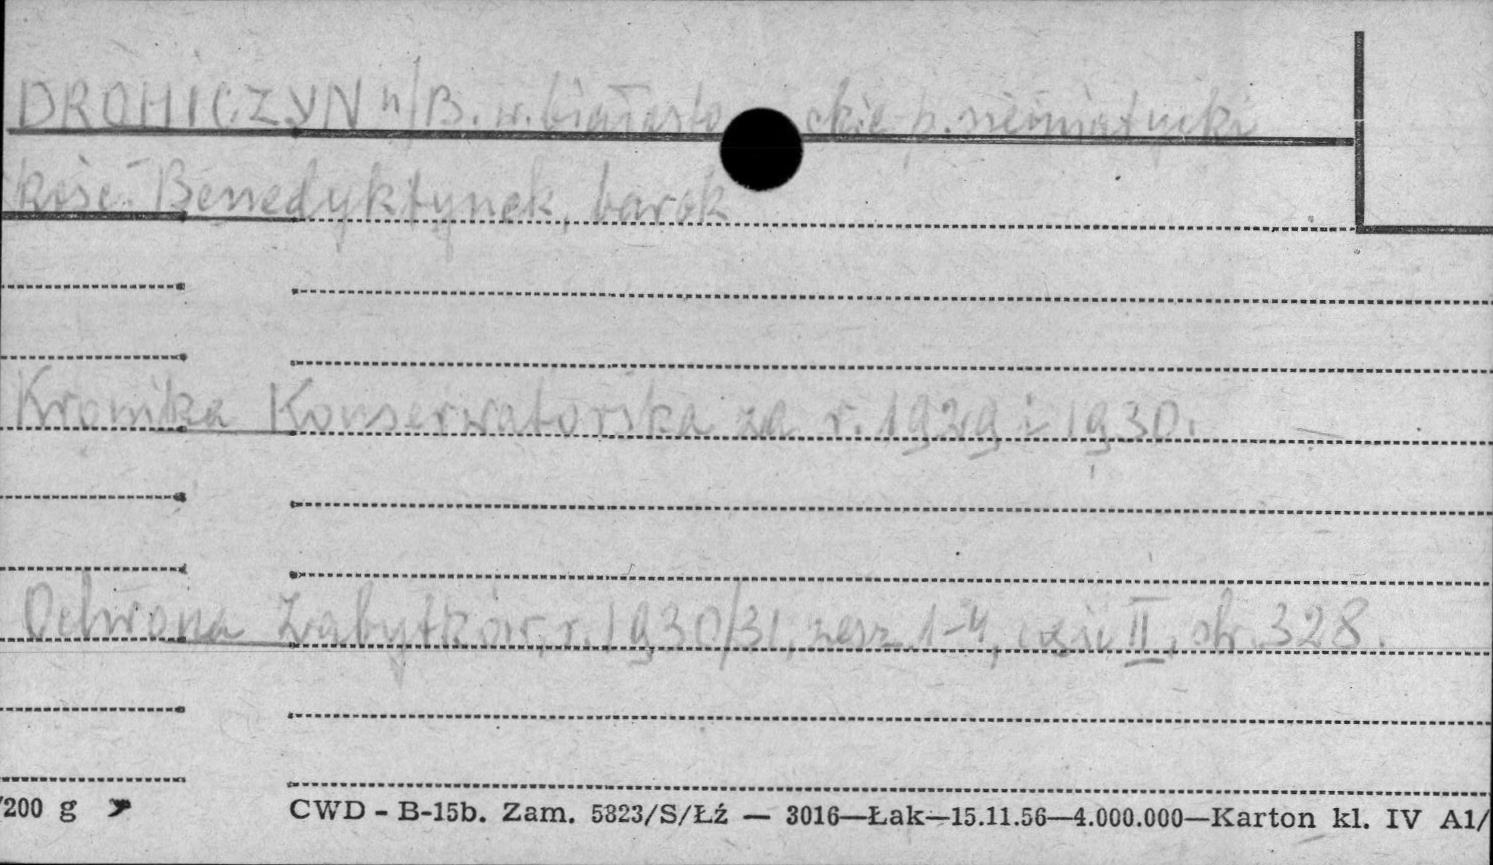 DROHICZYN n/B. w. białosto ckie p. siemiatycki
kość. Benedyktynek, barok
Kronika Konserwatorska za r. 1929 i 1930.
Ochrona Zabytków, r. 1930/31, zesz. 1-4, część II, str. 328.
/200 g
CWD - B-15b. Zam. 5823/S/Łź — 3016—Łak—15.11.56—4.000.000—Karton kl. IV A1/